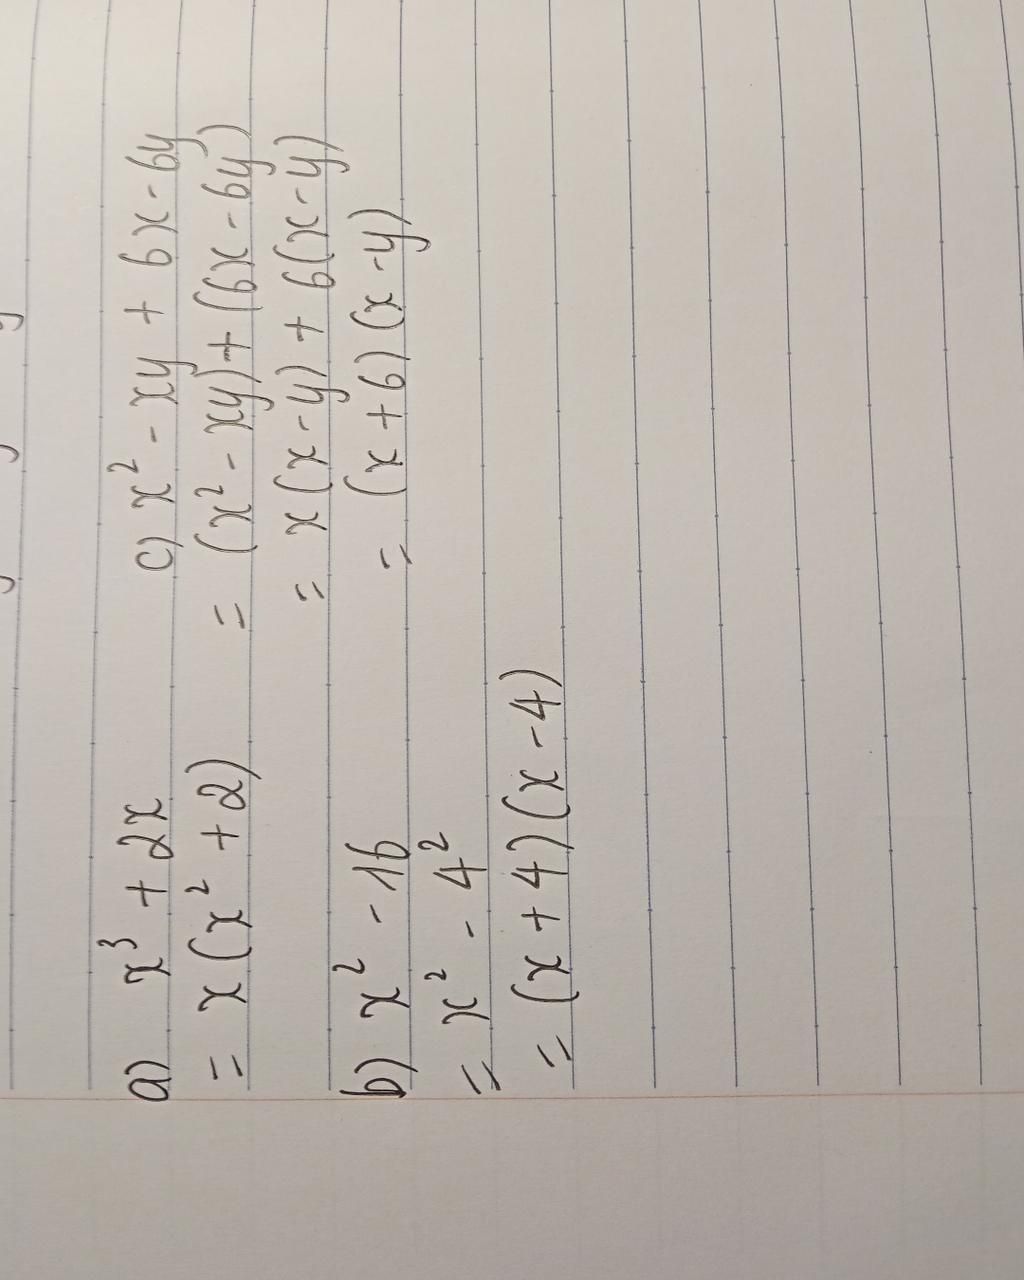 a) x³ + 2x
= x(x² + 2)
b) x² - 16
= x² - 4²
= (x + 4)(x - 4)
c) x² - xy + 6x - 6y
= (x² - xy) + (6x - 6y)
= x(x - y) + 6(x - y)
= (x + 6)(x - y)